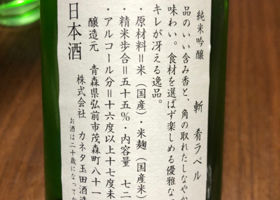 純米吟醸 斬 肴ラベル
品のいい含み香と、角の取れたしなやか
味わい。食材を選ばず楽しめる優雅な
キレが冴える逸品。
・原材料=米（国産）・米麹（国産米）
・精米歩合=五十五%・内容量 七二
・アルコール分=十六度以上十七度未
醸造元 青森県弘前市茂森町八十一
株式会社 カネタ玉田酒造
日本酒
お酒は二十歳になってか